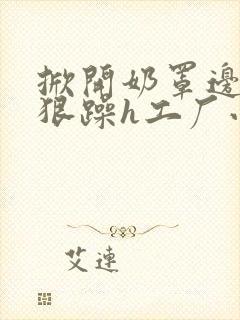 掀開奶罩邊
狠躁h工厂
艾連